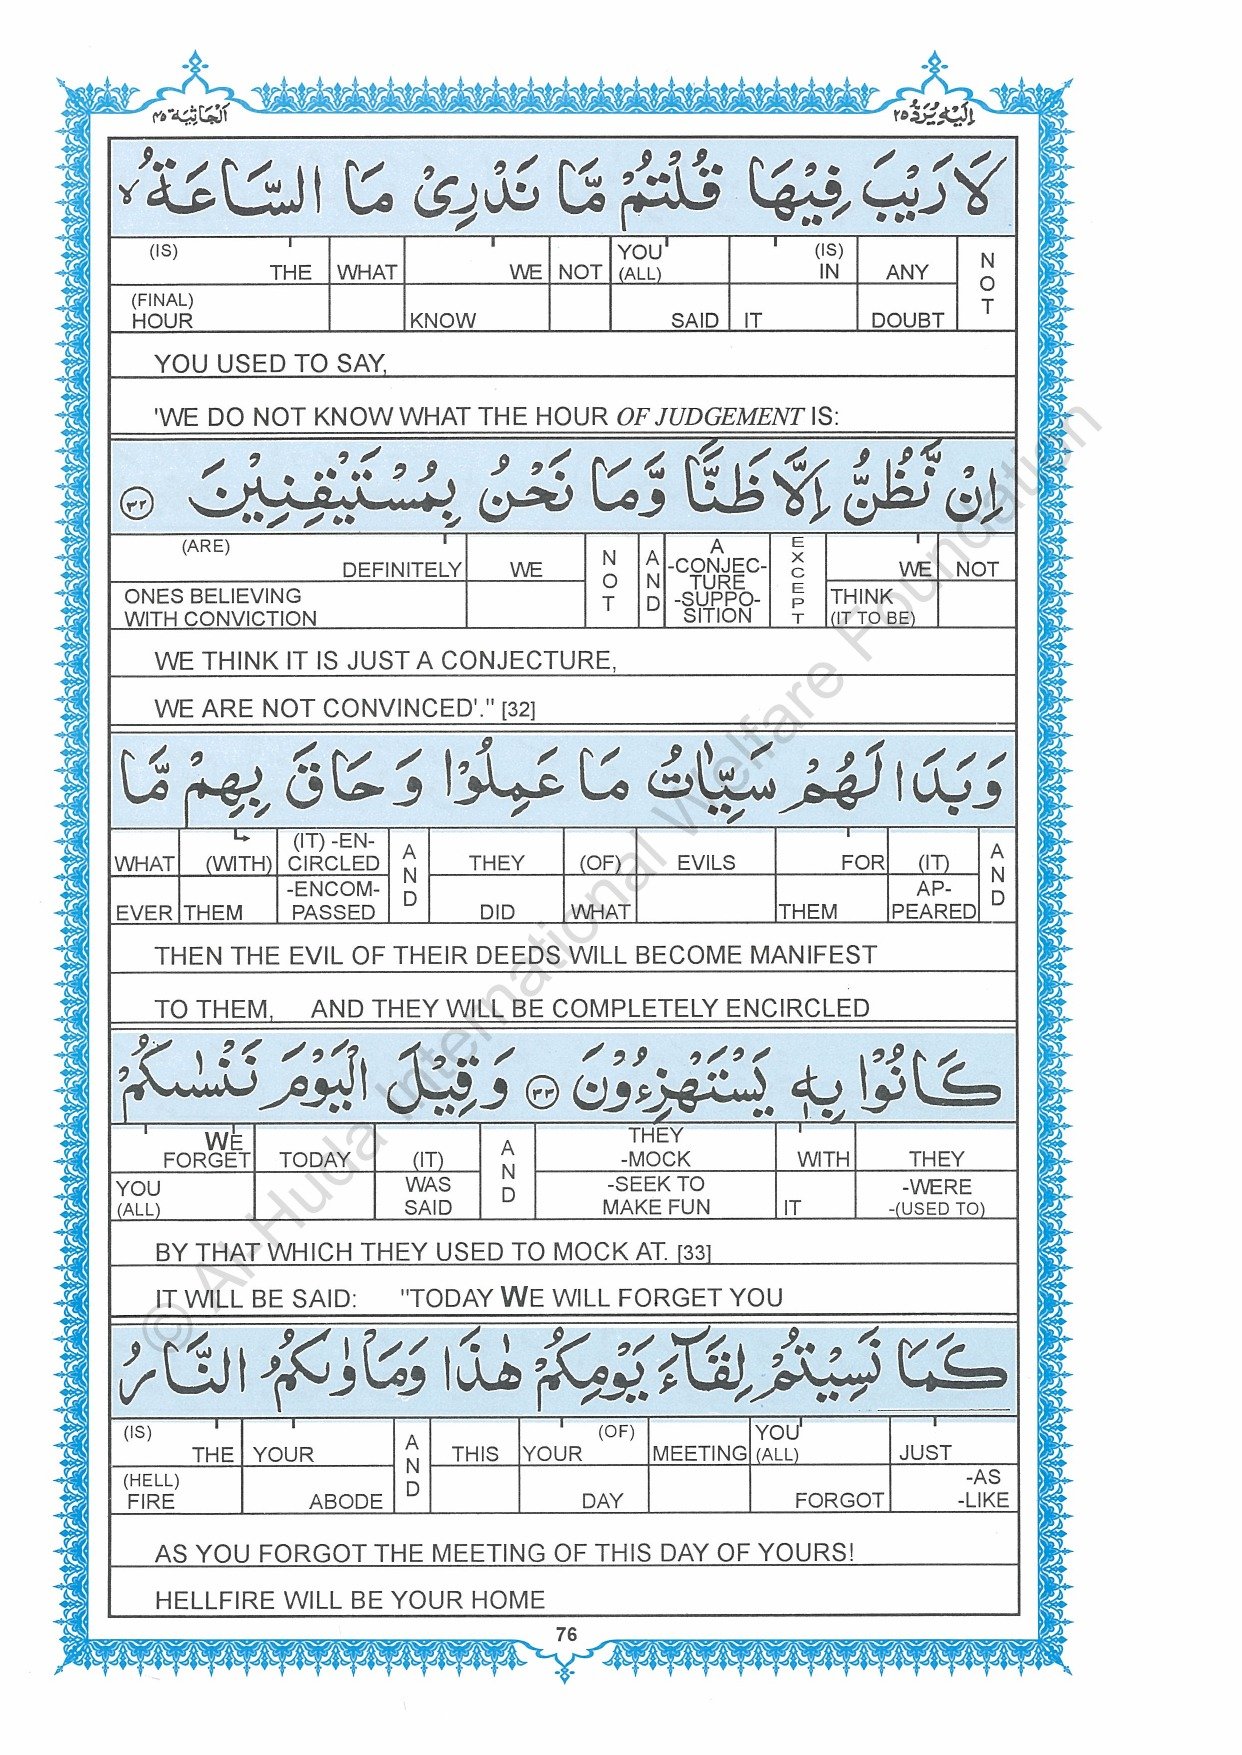 اَلْجَاثِيَة ٤٥
اِلَيْهِ يُرَدُّ ٢٥
لَا رَيْبَ فِيْهَا قُلْتُمْ مَّا نَدْرِىْ مَا السَّاعَةُ ۙ
(IS) YOU (IS) N
THE WHAT WE NOT (ALL) IN ANY O
(FINAL) T
HOUR KNOW SAID IT DOUBT
YOU USED TO SAY,
'WE DO NOT KNOW WHAT THE HOUR OF JUDGEMENT IS:
اِنْ نَّظُنُّ اِلَّا ظَنًّا وَّمَا نَحْنُ بِمُسْتَيْقِنِيْنَ ٣٢
(ARE) DEFINITELY WE NOT AND A -CONJEC- TURE -SUPPO- SITION EXCEPT WE NOT
ONES BELIEVING WITH CONVICTION THINK (IT TO BE)
WE THINK IT IS JUST A CONJECTURE,
WE ARE NOT CONVINCED'." [32]
وَبَدَا لَهُمْ سَيِّاٰتُ مَا عَمِلُوْا وَحَاقَ بِهِمْ مَّا
WHAT (WITH) (IT) -EN- CIRCLED AND THEY (OF) EVILS FOR (IT) AND
EVER THEM -ENCOM- PASSED DID WHAT THEM AP- PEARED
THEN THE EVIL OF THEIR DEEDS WILL BECOME MANIFEST
TO THEM, AND THEY WILL BE COMPLETELY ENCIRCLED
كَانُوْا بِهٖ يَسْتَهْزِءُوْنَ ٣٣ وَقِيْلَ الْيَوْمَ نَنْسٰىكُمْ
WE FORGET TODAY (IT) AND THEY -MOCK WITH THEY
YOU (ALL) WAS SAID -SEEK TO MAKE FUN IT -WERE -(USED TO)
BY THAT WHICH THEY USED TO MOCK AT. [33]
IT WILL BE SAID: "TODAY WE WILL FORGET YOU
كَمَا نَسِيْتُمْ لِقَآءَ يَوْمِكُمْ هٰذَا وَمَاْوٰىكُمُ النَّارُ
(IS) THE YOUR AND THIS YOUR (OF) MEETING YOU (ALL) JUST
(HELL) FIRE ABODE DAY FORGOT -AS -LIKE
AS YOU FORGOT THE MEETING OF THIS DAY OF YOURS!
HELLFIRE WILL BE YOUR HOME
76
© Al-Huda International Welfare Foundation